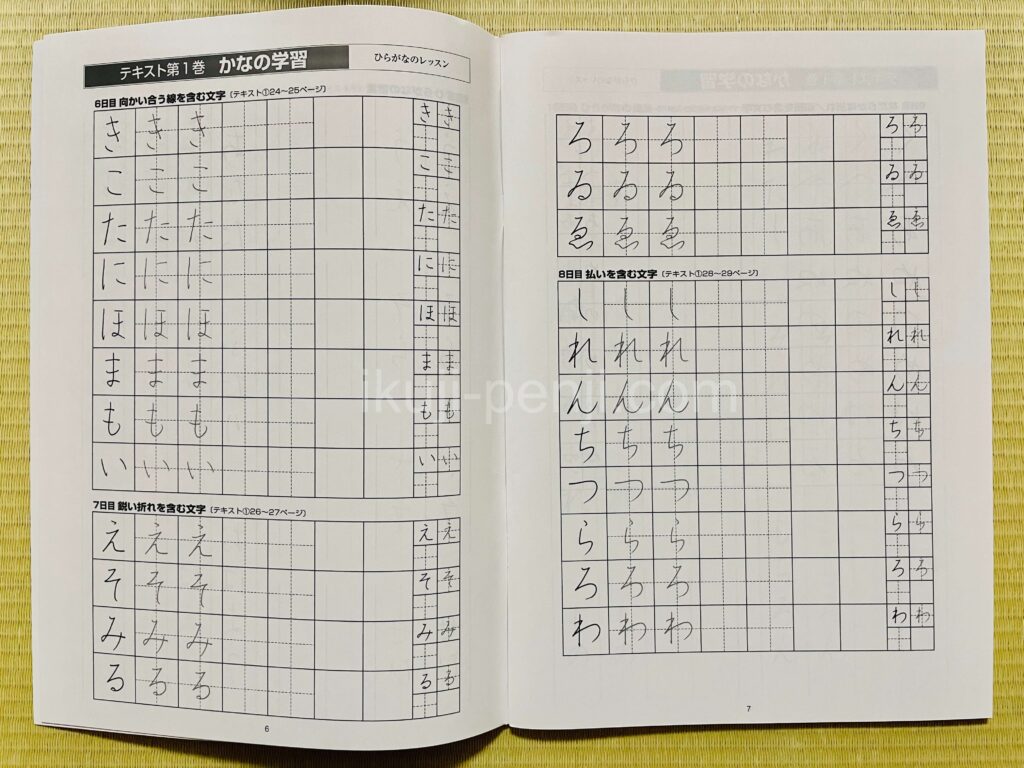 テキスト第1巻 かなの学習 ひらがなのレッスン
6日目 向かい合う線を含む文字（テキスト①24〜25ページ）
き き き き き
こ こ こ こ こ
た た た た た
に に に に に
ほ ほ ほ ほ ほ
ま ま ま ま ま
も も も も も
い い い い い
7日目 鋭い折れを含む文字（テキスト①26〜27ページ）
え え え え え
そ そ そ そ そ
み み み み み
る る る る る
6
ろ ろ ろ ろ ろ
ゐ ゐ ゐ ゐ ゐ
ゑ ゑ ゑ ゑ ゑ
8日目 払いを含む文字（テキスト①28〜29ページ）
し し し し し
れ れ れ れ れ
ん ん ん ん ん
ち ち ち ち ち
つ つ つ つ つ
ら ら ら ら ら
ろ ろ ろ ろ ろ
わ わ わ わ わ
7
ikuji-penji.com